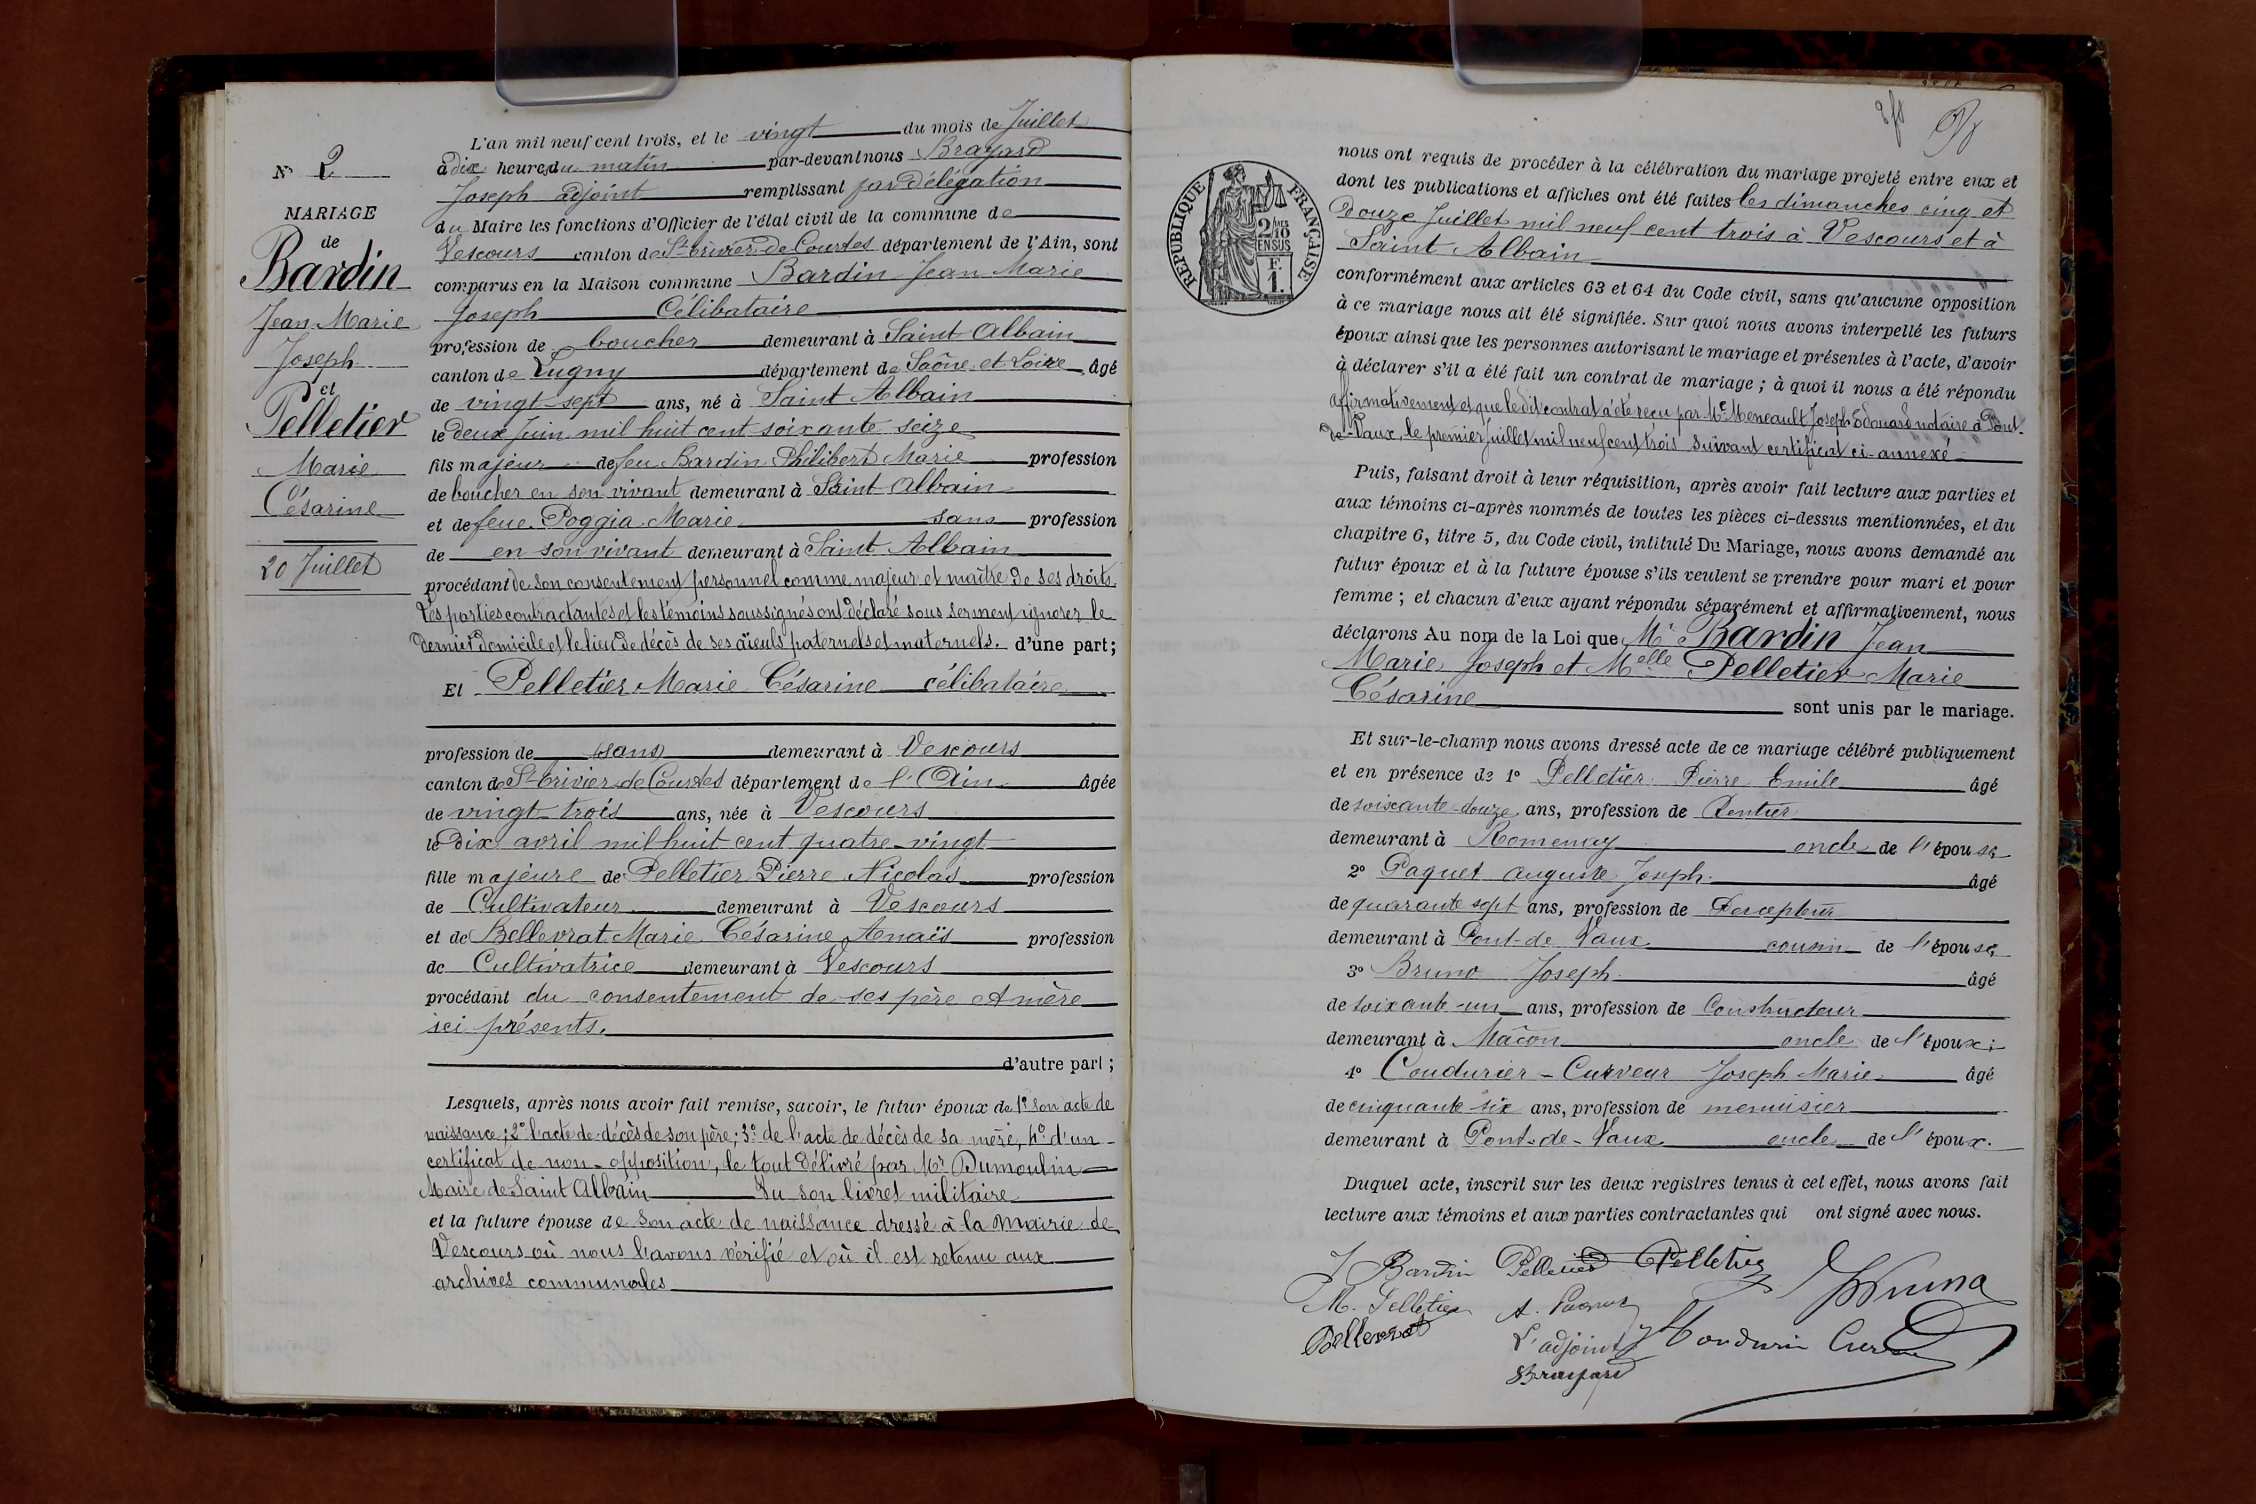 N° 2
MARIAGE
de
Bardin
Jean Marie
Joseph
et
Pelletier
Marie
Césarine
20 Juillet
L'an mil neuf cent trois, et le vingt du mois de Juillet
à dix heures du matin par-devant nous Brayard
Joseph adjoint remplissant par Délégation
du Maire les fonctions d'Officier de l'état civil de la commune de
Vescours canton de St trivier de Courtes département de l'Ain, sont
comparus en la Maison commune Bardin Jean Marie
Joseph Célibataire
profession de boucher demeurant à Saint Albain
canton de Lugny département de Saône-et-Loire âgé
de vingt-sept ans, né à Saint Albain
le deux Juin mil huit cent soixante seize
fils majeur de feu Bardin Philibert Marie profession
de boucher en son vivant demeurant à Saint Albain
et de feue Poggia Marie sans profession
de en son vivant demeurant à Saint Albain
procédant de son consentement personnel comme majeur et maître de ses droits.
Les parties contractantes et les témoins soussignés ont déclaré sous serment ignorer le
dernier domicile et le lieu de décès de ses aïeuls paternels et maternels. d'une part;
Et Pelletier Marie Césarine célibataire
profession de (sans) demeurant à Vescours
canton de St trivier de Courtes département de l'Ain âgée
de vingt trois ans, née à Vescours
le dix avril mil huit cent quatre-vingt
fille majeure de Pelletier Pierre Nicolas profession
de Cultivateur demeurant à Vescours
et de Bellevrat Marie Césarine Anaïs profession
de Cultivatrice demeurant à Vescours
procédant du consentement de ses père et mère
ici présents.
d'autre part;
Lesquels, après nous avoir fait remise, savoir, le futur époux de 1° son acte de
naissance; 2° l'acte de décès de son père; 3° de l'acte de décès de sa mère, 4° d'un
certificat de non-opposition, le tout délivré par Mr Dumoulin
Maire de Saint Albain Vu son livret militaire
et la future épouse de son acte de naissance dressé à la Mairie de
Vescours où nous l'avons vérifié et où il est retenu aux
archives communales
RÉPUBLIQUE FRANÇAISE
2/10
EN SUS
F.
1.
nous ont requis de procéder à la célébration du mariage projeté entre eux et
dont les publications et affiches ont été faites les dimanches cinq et
douze Juillet mil neuf cent trois à Vescours et à
Saint Albain
conformément aux articles 63 et 64 du Code civil, sans qu'aucune opposition
à ce mariage nous ait été signifiée. Sur quoi nous avons interpellé les futurs
époux ainsi que les personnes autorisant le mariage et présentes à l'acte, d'avoir
à déclarer s'il a été fait un contrat de mariage; à quoi il nous a été répondu
affirmativement et que ledit contrat a été reçu par Me Meneault Joseph Edouard notaire à Pont-
de-Vaux, le premier Juillet mil neuf cent trois suivant certificat ci-annexé
Puis, faisant droit à leur réquisition, après avoir fait lecture aux parties et
aux témoins ci-après nommés de toutes les pièces ci-dessus mentionnées, et du
chapitre 6, titre 5, du Code civil, intitulé Du Mariage, nous avons demandé au
futur époux et à la future épouse s'ils veulent se prendre pour mari et pour
femme; et chacun d'eux ayant répondu séparément et affirmativement, nous
déclarons Au nom de la Loi que Mr Bardin Jean
Marie Joseph et Melle Pelletier Marie
Césarine sont unis par le mariage.
Et sur-le-champ nous avons dressé acte de ce mariage célébré publiquement
et en présence de 1° Pelletier Pierre Emile âgé
de soixante-douze ans, profession de Rentier
demeurant à Romenay oncle de l'épouse
2° Paquet Auguste Joseph âgé
de quarante sept ans, profession de Percepteur
demeurant à Pont-de Vaux cousin de l'épouse
3° Bruno Joseph âgé
de soixante-un ans, profession de Constructeur
demeurant à Mâcon oncle de l'époux;
4° Coudurier-Curveur Joseph Marie âgé
de cinquante six ans, profession de menuisier
demeurant à Pont-de-Vaux oncle de l'époux.
Duquel acte, inscrit sur les deux registres tenus à cet effet, nous avons fait
lecture aux témoins et aux parties contractantes qui ont signé avec nous.
J Bardin Pelletier Pelletier Bruno
M. Pelletier A. Paquet
Bellevrat L'adjoint Coudurier Curveur
Brayard